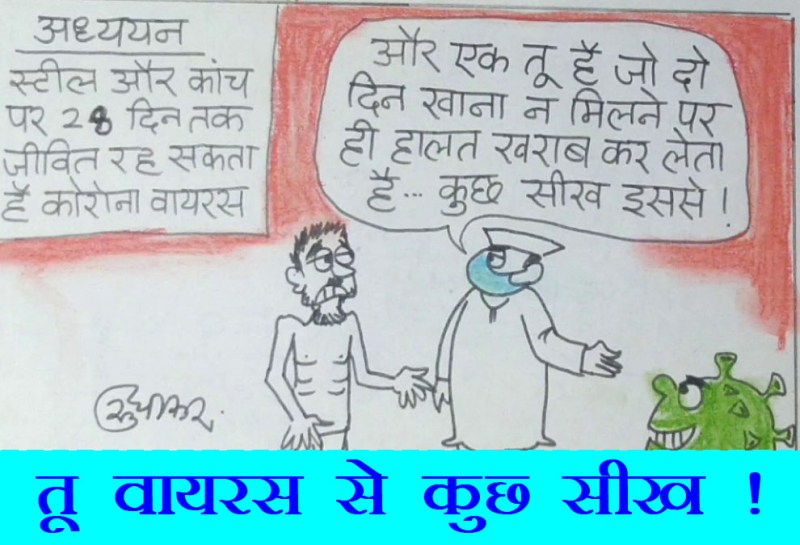 अध्ययन
स्टील और कांच
पर 28 दिन तक
जीवित रह सकता
है कोरोना वायरस
और एक तू है जो दो
दिन खाना न मिलने पर
ही हालत खराब कर लेता
है... कुछ सीख इससे !
तू वायरस से कुछ सीख !